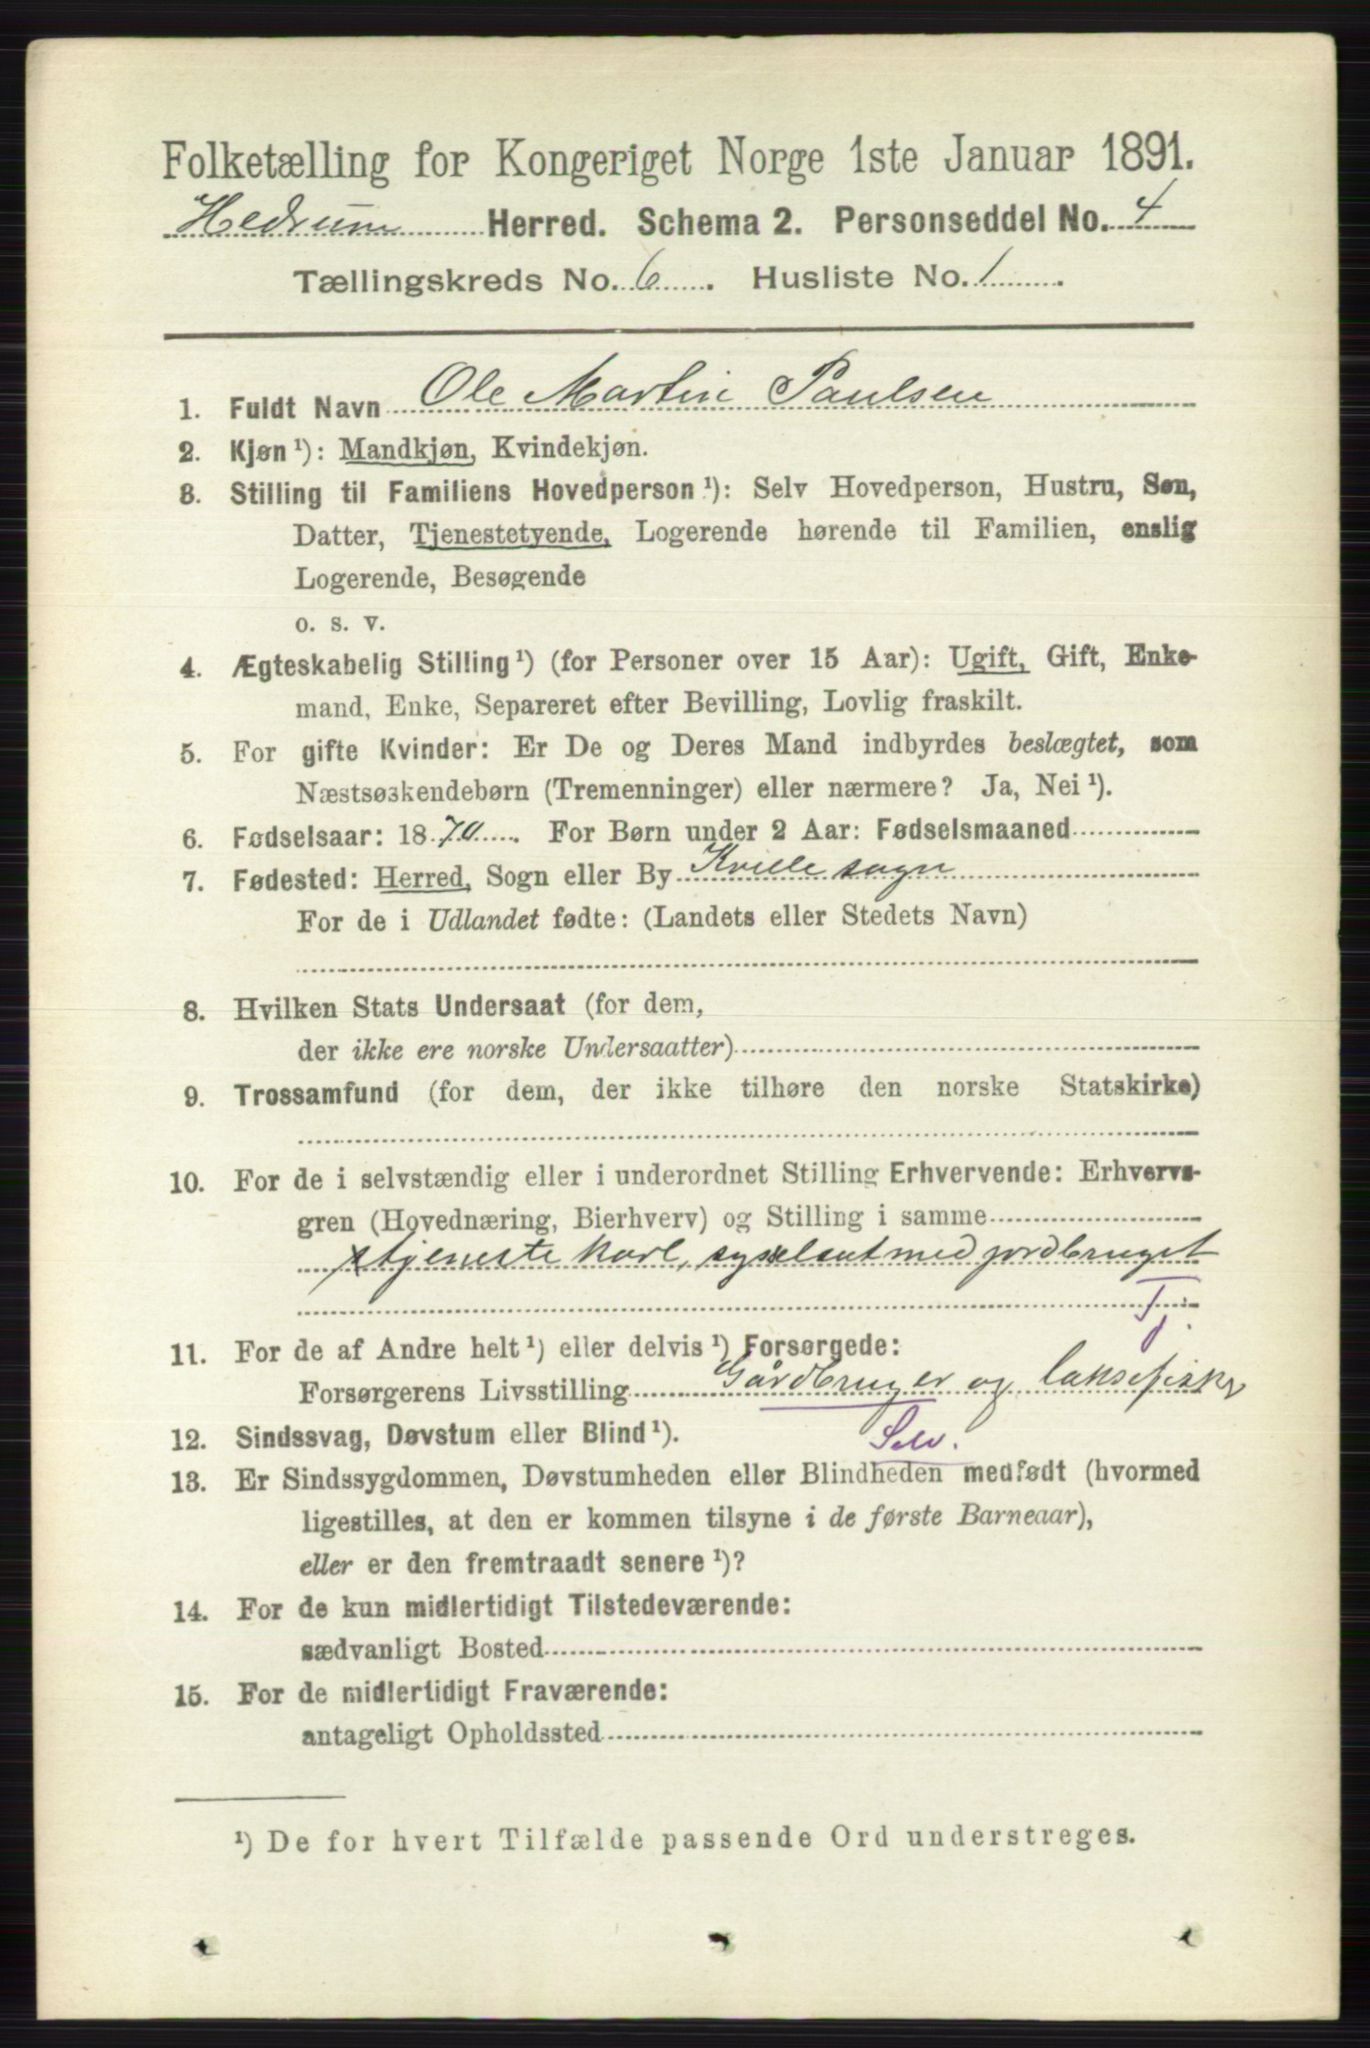 Folketælling for Kongeriget Norge 1ste Januar 1891.
Hedrum Herred. Schema 2. Personseddel No. 4
Tællingskreds No. 6. Husliste No. 1.
1. Fuldt Navn Ole Martin Paulsen
2. Kjøn ¹): Mandkjøn, Kvindekjøn.
3. Stilling til Familiens Hovedperson ¹): Selv Hovedperson, Hustru, Søn,
Datter, Tjenestetyende, Logerende hørende til Familien, enslig
Logerende, Besøgende
o. s. v.
4. Ægteskabelig Stilling ¹) (for Personer over 15 Aar): Ugift, Gift, Enke-
mand, Enke, Separeret efter Bevilling, Lovlig fraskilt.
5. For gifte Kvinder: Er De og Deres Mand indbyrdes beslægtet, som
Næstsøskendebørn (Tremenninger) eller nærmere? Ja, Nei ¹).
6. Fødselsaar: 1870. For Børn under 2 Aar: Fødselsmaaned
7. Fødested: Herred, Sogn eller By Kville sogn
For de i Udlandet fødte: (Landets eller Stedets Navn)
8. Hvilken Stats Undersaat (for dem,
der ikke ere norske Undersaatter)
9. Trossamfund (for dem, der ikke tilhøre den norske Statskirke)
10. For de i selvstændig eller i underordnet Stilling Erhvervende: Erhvervs-
gren (Hovednæring, Bierhverv) og Stilling i samme
tjeneste karl, sysselsat med jordbruget
T j.
11. For de af Andre helt ¹) eller delvis ¹) Forsørgede:
Forsørgerens Livsstilling Gårdbruger og laksefisker
12. Sindssvag, Døvstum eller Blind ¹). Selv.
13. Er Sindssygdommen, Døvstumheden eller Blindheden medfødt (hvormed
ligestilles, at den er kommen tilsyne i de første Barneaar),
eller er den fremtraadt senere ¹)?
14. For de kun midlertidigt Tilstedeværende:
sædvanligt Bosted
15. For de midlertidigt Fraværende:
antageligt Opholdssted
¹) De for hvert Tilfælde passende Ord understreges.